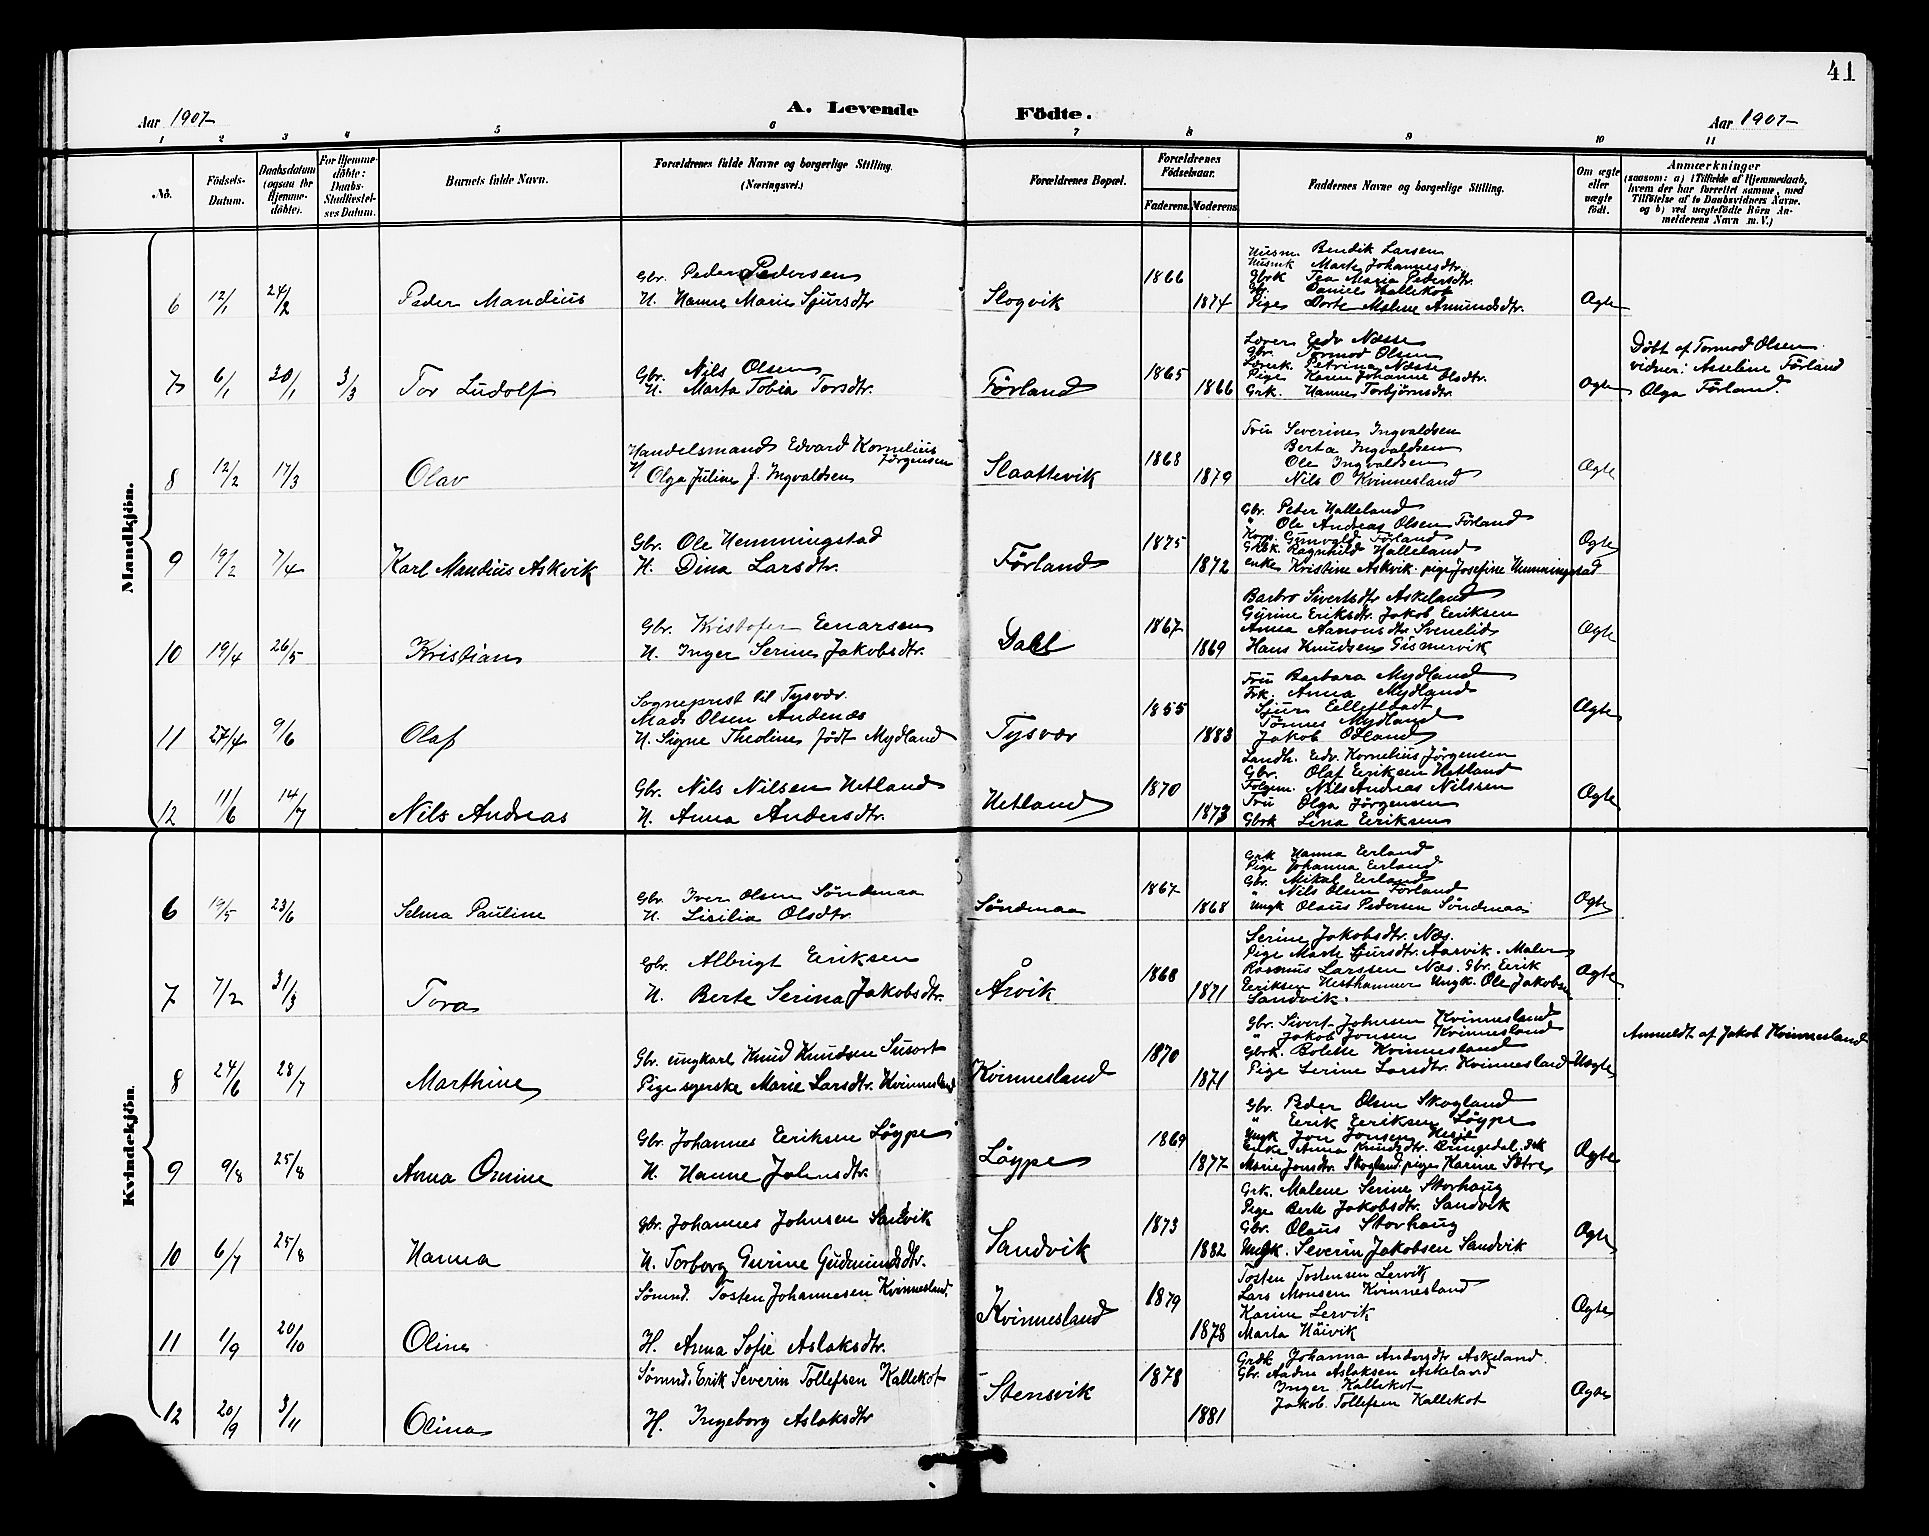 41
Aar 1907
A. Levende Födte.
Aar 1907
1 2 3 4 5 6 7 8 9 10 11
No.
Födsels-Datum.
Daabsdatum (ogsaa for Hjemmedöbte).
For Hjemmedöbte: Daabs-Stadfæstelses Datum.
Barnets fulde Navn.
Forældrenes fulde Navne og borgerlige Stilling. (Næringsvei.)
Forældrenes Bopæl.
Forældrenes Födselsaar.
Faderens. Moderens.
Faddernes Navne og borgerlige Stilling.
Om ægte eller uægte födt.
Anmærkninger
(saasom: a) i Tilfælde af Hjemmedaab, hvem der har forrettet samme, med Tilföielse af to Daabsvidners Navne. og b) ved uægtefödte Börn Anmelderens Navn m. V.)
Mandkjön.
6 12/1 24/2 Peder Mandius
Gbr. Peder Pedersen
H. Hanne Marie Sjursdtr
Slogvik 1866 1874
Husm. Bendik Larsen
Husmk Marte Johannesdtr.
Gbrk Tea Maria Pedersdtr.
Daniel Hallekot
Pige Dorte Malene Amundsdtr.
Ægte
7 6/1 20/1 3/3 Tor Ludolf
Gbr. Nils Olsen
H. Marta Tobia Torsdtr.
Førland 1865 1866
Lærer Edv Næsse
Gbr. Tormod Olsen
Lærerk. Petrina Næsse
Pige Karen Johanne Olsdtr.
Grk. Hanne Torbjørnsdtr.
Ægte
Døbt af Tormod Olsen
vidner: Asseline Førland
Olga Førland.
8 12/2 17/3 Olav
Handelsmand Edvard Kornelius Jörgensen
H Olga Juline J. Ingvaldsen
Slaattevik 1868 1879
Fru Severine Ingvaldsen
Berta Ingvaldsen
Ole Ingvaldsen
Nils O Kvinnesland
Ægte
9 19/2 7/4 Karl Mandius Askvik
Gbr. Ole Hemmingstad
H. Dina Larsdtr.
Førland 1875 1872
Gbr. Peter Halleland
" Ole Andreas Olsen Førland
Gunvald Førland
Gbk. Ragnhild Halleland
enke Kristine Askvik. pige Josefine Hemmingstad
Ægte
10 19/4 26/5 Kristian
Gbr. Kristofer Einarsen
H. Inger Serine Jakobsdtr.
Dall 1867 1869
Barbro Sivertsdtr Askeland
Gyrine Eriksdtr. Jakob Eeriksen
Anna Aanonsdtr. Svenelid
Hans Knudsen Gismervik
Ægte
11 27/4 9/6 Olaf
Sogneprest til Tysvær.
Mads Olsen Andenæs
H. Signe Theoline født Mydland
Tysvær 1855 1883
Fru Barbara Mydland
Frk. Anna Mydland
Sjurs
Tønnes Mydland
Jakob Odland
Ægte
12 11/6 14/7 Nils Andreas
Gbr. Nils Nilsen Hetland
H. Anna Andersdtr.
Hetland 1870 1873
Landh. Edv. Kornelius Jörgensen
Gbr. Olaf Eeriksen Hetland
Folgem. Nils Andreas Nilssen
Fru Olga Jörgensen
Gbrk Lina Eeriksen
Ægte
Kvindekjön.
6 19/5 23/6 Selma Pauline
Gbr. Iver Olsen Söndenaa
H. Lisilia Olsdtr.
Söndenaa 1867 1868
Grk Hanna Eerland
Pige Johanna Eerland
Gbr. Mikal Eerland
" Nils Olsen Førland
Ungk Olaus Pedersen Söndenaa
Ægte
7 7/2 31/3 Tora
Gbr. Albrigt Eeriksen
H. Berte Serina Jakobsdtr.
Årvik 1868 1871
Serine Jakobsdtr. Næs.
Pige Marte Sjursdtr. Aarvik. Maler
Rasmus Larssen Næs. Gbr. Eerik
Eeriksen Hesthammer Ungk. Ole Jakobsen
Sandvik.
Ægte
8 24/6 28/7 Marthine
Gbr. ungkarl Knud Knudsen Susort
Pige syerske Marie Larsdtr. Kvinnesland
Kvinnesland 1870 1871
Gbr. Sivert Johnsen Kvinnesland
" Jakob Jonsen Kvinnesland
Gbrk. Bolette Kvinnesland
Pige Serine Larsdtr. Kvinnesland
Uægte
Anmeldt af Jakob Kvinnesland
9 9/8 25/8 Anna Omine
Gbr. Johannes Eeriksen Löype
H. Hanne Johnsdtr.
Löype 1869 1877
Gbr. Peder Olsen Skogland
" Eerik Eeriksen Löype
Ungk Jon Jonsen
Enke Anna Knudsdtr.
Marie Jonsdtr. Skogland, pige Karine
Ægte
10 6/7 25/8 Hanna
Gbr. Johannes Johnsen Sandvik
H. Torborg Gurine Gudmundsdtr.
Sandvik 1873 1882
Grk. Malene Serine Storhaug
Pige Berte Jakobsdtr. Sandvik
Gbr. Olaus Storhaug
Ungk. Severin Jakobsen Sandvik
Ægte
11 1/9 20/10 Oline
Sömd. Tosten Johannesen Kvinnesland.
H. Anna Sofie Aslaksdtr.
Kvinnesland 1879 1878
Tosten Tostensen Lervik
Lars Monsen Kvinnesland
Karine Lervik
Marta Håivik
Ægte
12 20/9 3/11 Olina
Sömd. Erik Severin Tollefsen Kallekot
H. Ingeborg Aslaksdtr
Stensvik 1878 1881
Johanna Andersdtr Askeland.
Gbr. Aadne Aslaksen Askeland
Inger Kallekot
Jakob Tollefsen Kallekot
Ægte